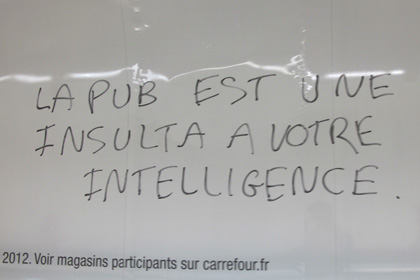 LA PUB EST UNE
INSULTA A VOTRE
INTELLIGENCE.
2012. Voir magasins participants sur carrefour.fr